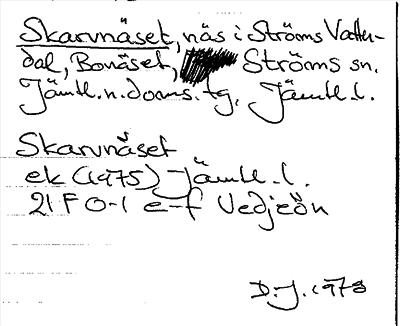 Skarvnäset, näs i Ströms Vattu-
dal, Bonäset, Ströms sn.
Jämtl. n. doms. tg, Jämtl. l.
Skarvnäset
ek (1975) Jämtl. l.
21 F 0-1 e-f Vedjeön
D. J. 1978